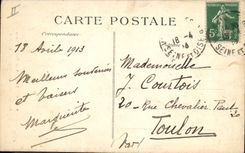 II
CARTE POSTALE
Correspondance
18 Avril 1913
Meilleurs souvenirs
et baisers
Marguerite
Mademoiselle
J. Courtois
20 Rue Chevalier Paul
20
Toulon
Var
18 -4
SEINE-ET-OISE
5